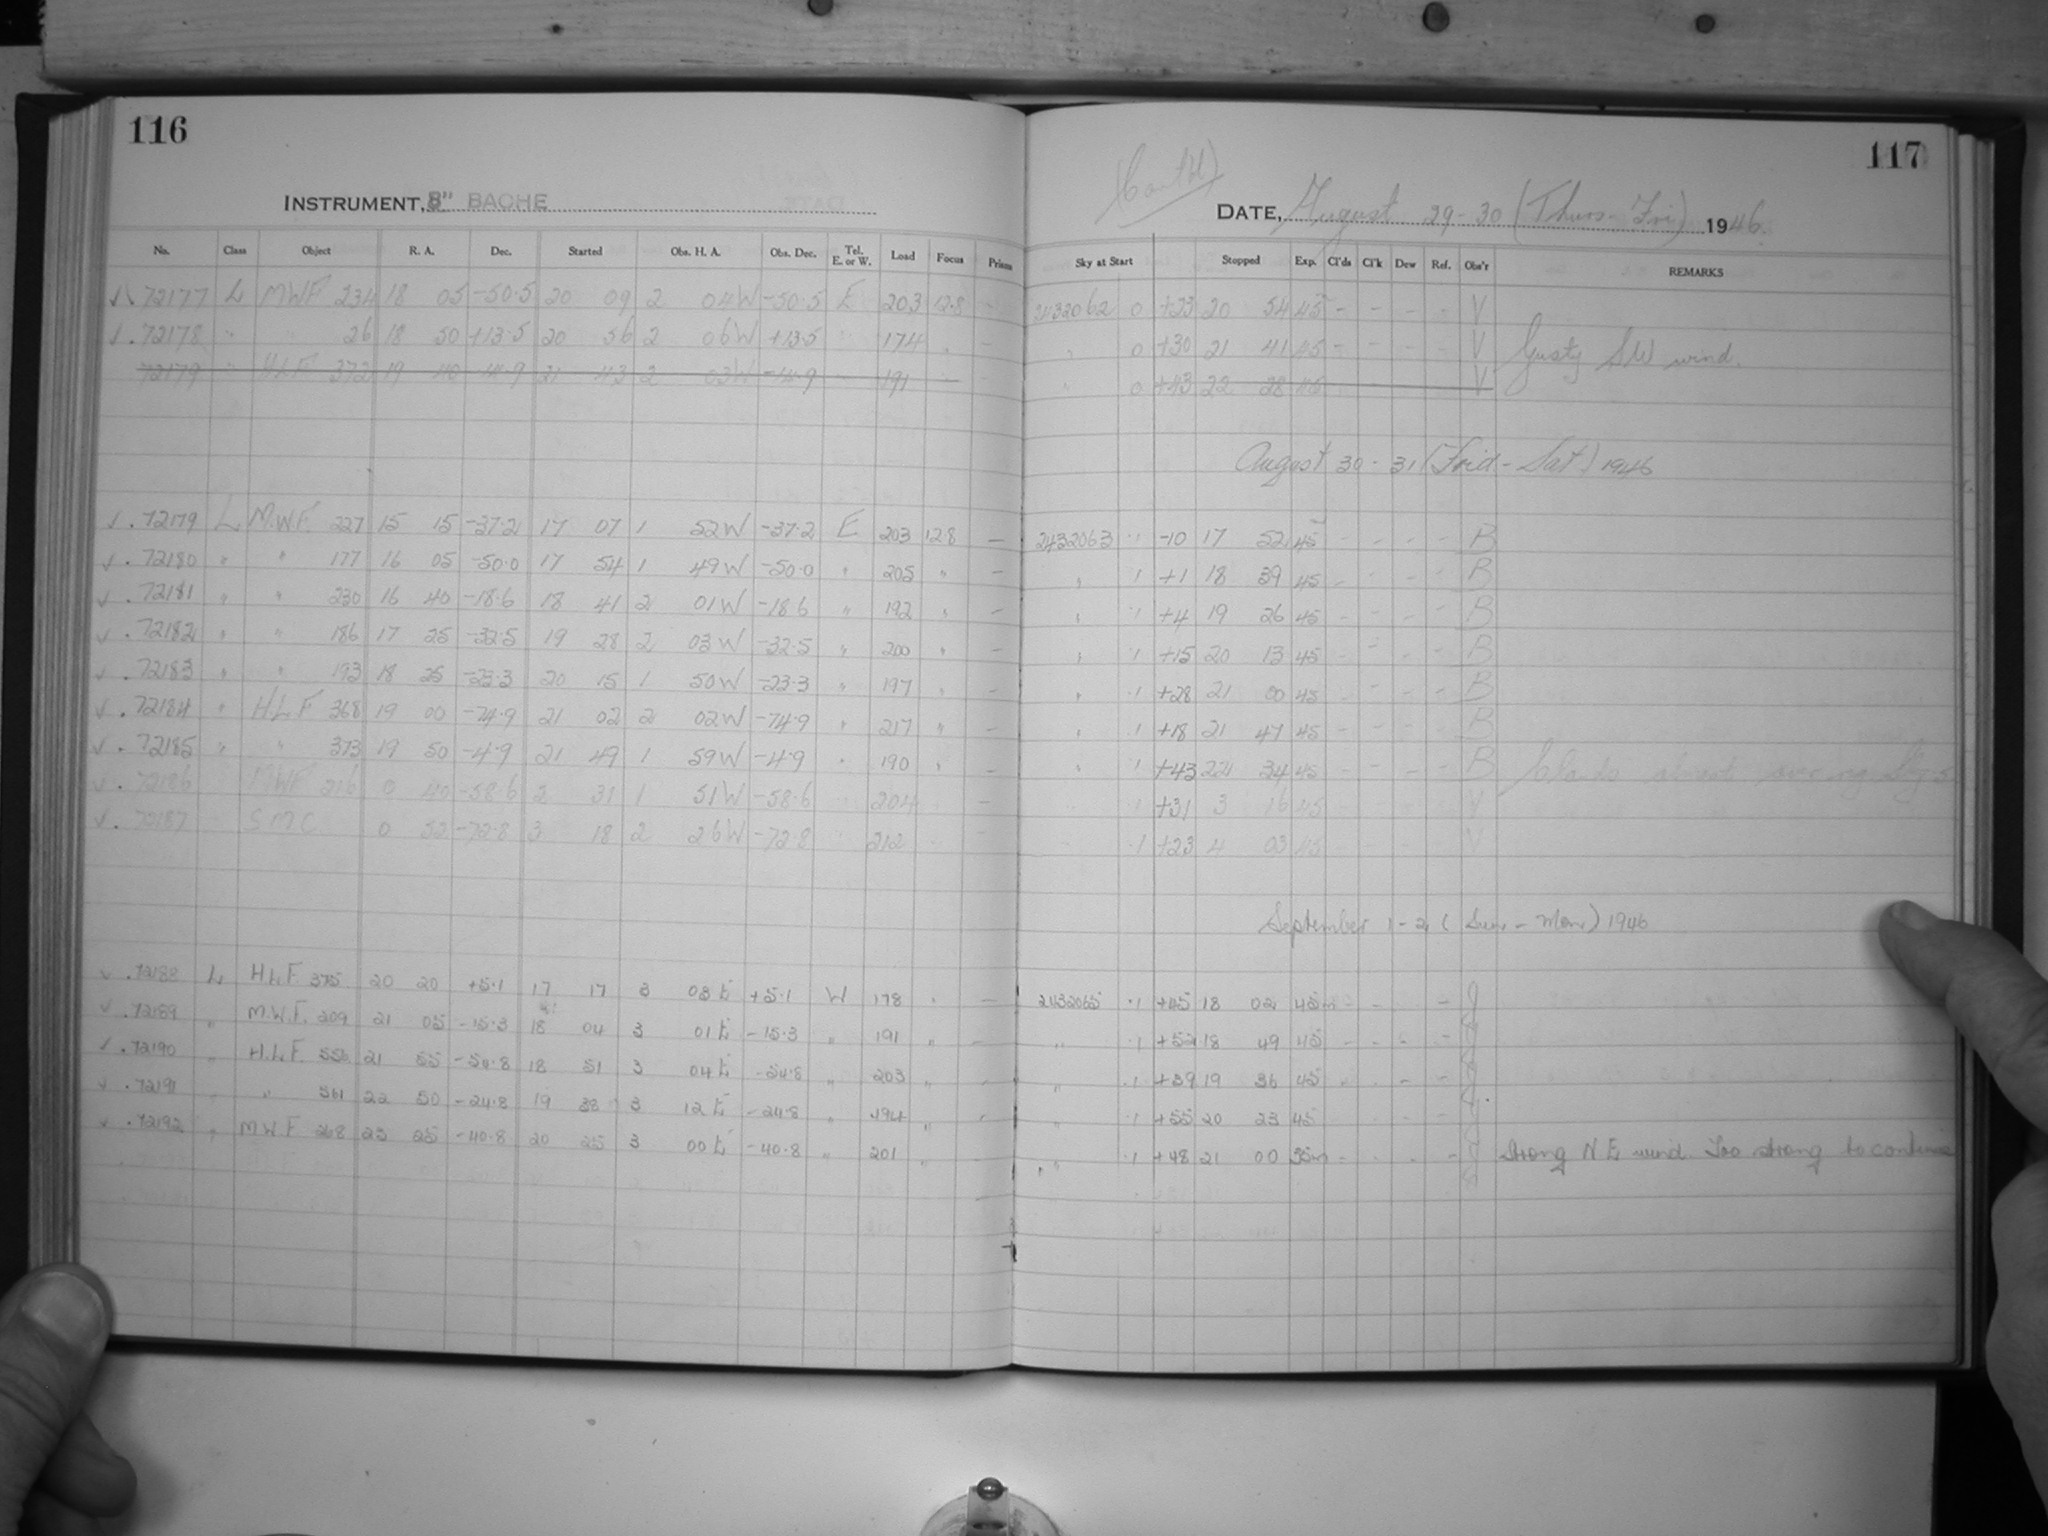 116
117
(Cont'd)
INSTRUMENT, 8" BACHE
DATE, August 29-30 (Thurs-Fri) 1946
No. Class Object R. A. Dec. Started Obs. H. A. Obs. Dec. Tel. E. or W. Load Focus Prism Sky at Start Stopped Exp. Cl'ds Cl'k Dew Ref. Obs'r REMARKS
72177 L MWF 234 18 05 -50.5 20 09 2 04W -50.5 E 203 12.8 - 2432062 0 +23 20 54 45 - - - - V
72178 " " 26 18 50 +13.5 20 56 2 06W +13.5 " 174 " - " 0 +30 21 41 45 - - - - V Gusty SW wind.
72179 " HLF 372 19 40 -14.9 21 43 2 03W -14.9 191 - " 0 +43 22 28 45 V
August 30-31 (Frid-Sat) 1946
72179 L M.W.F. 227 15 15 -37.2 17 07 1 52W -37.2 E 203 12.8 - 2432063 .1 -10 17 52 45 - - - - B
72180 " " 177 16 05 -50.0 17 54 1 49W -50.0 " 205 " - " .1 +1 18 39 45 - - - - B
72181 " " 230 16 40 -18.6 18 41 2 01W -18.6 " 192 " - " .1 +4 19 26 45 - - - - B
72182 " " 186 17 25 -32.5 19 28 2 03W -32.5 " 200 " - " .1 +15 20 13 45 - - - - B
72183 " " 193 18 25 -23.3 20 15 1 50W -23.3 " 197 " - " .1 +28 21 00 45 - - - - B
72184 " H.L.F 368 19 00 -74.9 21 02 2 02W -74.9 " 217 " - " .1 +18 21 47 45 - - - - B
72185 " " 373 19 50 -4.9 21 49 1 59W -4.9 " 190 " - " .1 +43 22 34 45 - - - - B Clouds about
72186 MWF 216 0 40 -58.6 2 31 1 51W -58.6 204 - " .1 +31 3 16 45 - - - V
72187 SMC 0 52 -72.8 3 18 2 26W -72.8 212 - .1 +23 4 03 45 - - - V
September 1-2 (Sun-Mon) 1946
72188 L H.L.F. 375 20 20 +5.1 17 17 3 03E +5.1 W 178 " - 2432065 .1 +45 18 02 45m - - - J
72189 " M.W.F. 209 21 05 -15.3 18 04 3 01E -15.3 " 191 " - " .1 +52 18 49 45 - - - - J
72190 " H.L.F. 556 21 55 -54.8 18 51 3 04E -54.8 " 203 " - " .1 +39 19 36 45 - - - J
72191 " " 561 22 50 -24.8 19 38 3 12E -24.8 " 194 " - " .1 +55 20 23 45 - - - J
72192 " M.W.F 268 23 25 -40.8 20 25 3 00E -40.8 " 201 " - " .1 +48 21 00 35m - - - J Strong N.E. wind. Too strong to continue